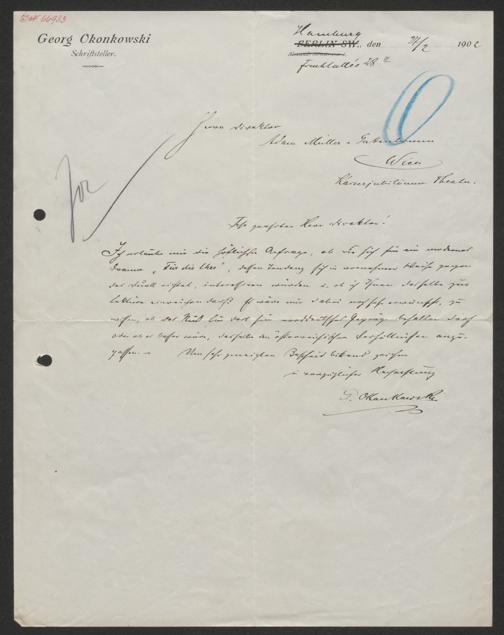 Georg Okonkowski
Schriftsteller.
Hamburg
BERLIN SW., den 21/2 1902
Herrn Direktor
Adam Müller-Guttenbrunn
Wien
Kaiserjubiläums Theater.
Sehr geehrter Herr Direktor!
Ich erlaube mir die höfliche Anfrage, ob Sie sich für ein modernes
Drama „Für die Ehre“, dessen Tendenz sich in vornehmer Weise gegen
das Duell richtet, interessiren würden u. ob ich Ihnen dasselbe zur
Lektüre einreichen darf? Es wäre mir dabei erwünscht, zu
wissen, ob das Stück sein norddeutsches Gepräge behalten darf
oder ob es besser wäre, dasselbe den österreichischen Verhältnissen anzu-
passen. Um sehr geneigten Bescheid bittend zeichne
in vorzüglicher Hochachtung
G. Okonkowski